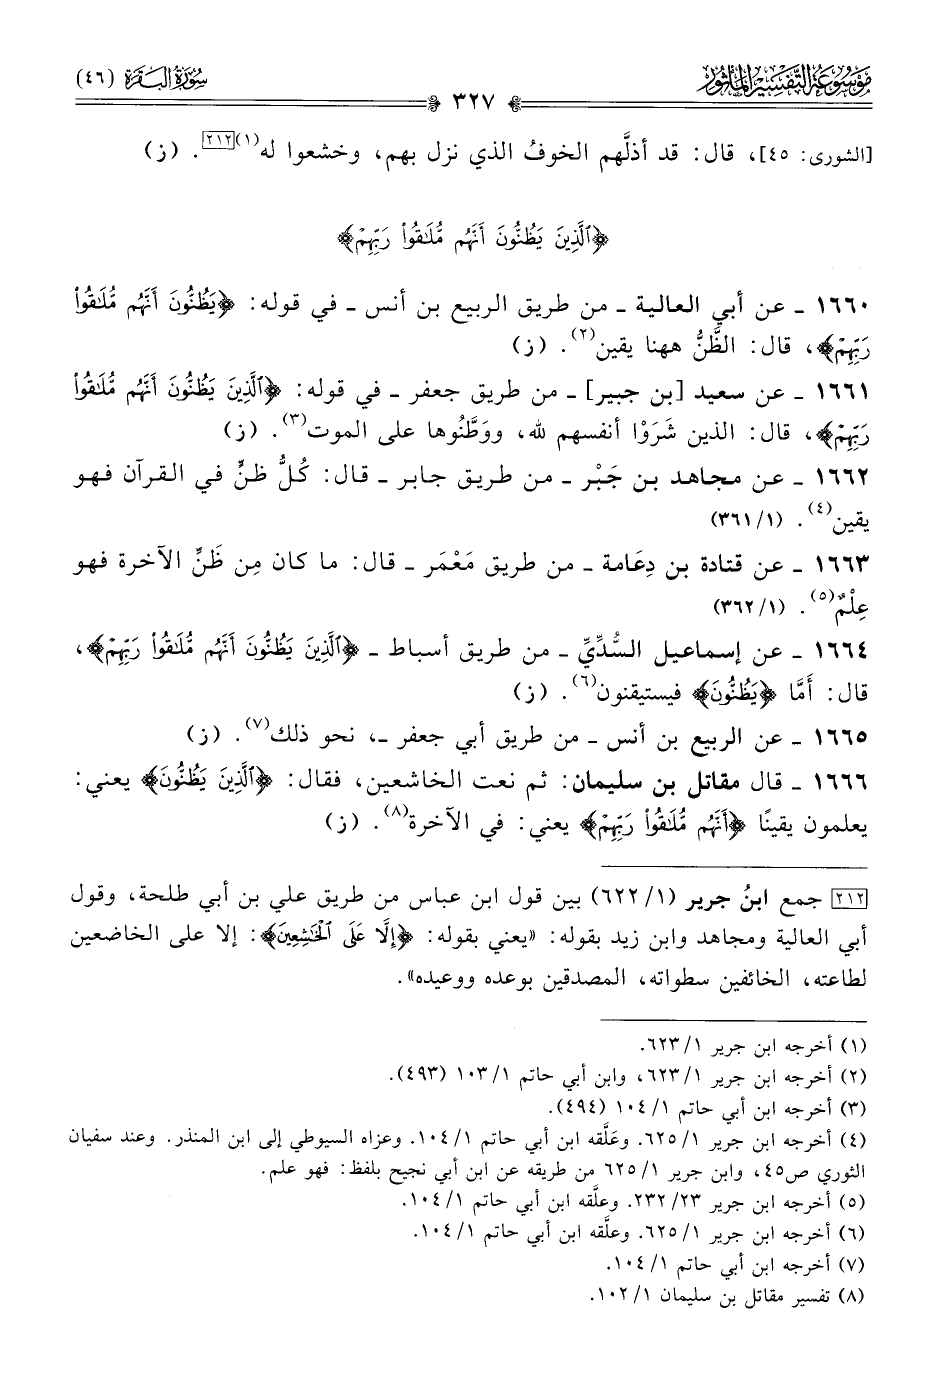 مَوْسُوعَة التَّفْسِيرِ المَأْثُور
سُورَةُ البَقَرَة (٤٦)
٣٢٧
[الشورى: ٤٥]، قال: قد أذلَّهم الخوفُ الذي نزل بهم، وخشعوا له(١)[٢١٢]. (ز)
﴿ٱلَّذِينَ يَظُنُّونَ أَنَّهُم مُّلَٰقُوا۟ رَبِّهِمْ﴾
١٦٦٠ ـ عن أبي العالية ـ من طريق الربيع بن أنس ـ في قوله: ﴿يَظُنُّونَ أَنَّهُم مُّلَٰقُوا۟
رَبِّهِمْ﴾، قال: الظَّنُّ ههنا يقين(٢). (ز)
١٦٦١ ـ عن سعيد [بن جبير] ـ من طريق جعفر ـ في قوله: ﴿ٱلَّذِينَ يَظُنُّونَ أَنَّهُم مُّلَٰقُوا۟
رَبِّهِمْ﴾، قال: الذين شَرَوْا أنفسهم لله، ووَطَّنُوها على الموت(٣). (ز)
١٦٦٢ ـ عن مجاهد بن جَبْر ـ من طريق جابر ـ قال: كُلُّ ظنٍّ في القرآن فهو
يقين(٤). (٣٦١/١)
١٦٦٣ ـ عن قتادة بن دِعَامة ـ من طريق مَعْمَر ـ قال: ما كان مِن ظَنِّ الآخرة فهو
عِلْمٌ(٥). (٣٦٢/١)
١٦٦٤ ـ عن إسماعيل السُّدِّيِّ ـ من طريق أسباط ـ ﴿ٱلَّذِينَ يَظُنُّونَ أَنَّهُم مُّلَٰقُوا۟ رَبِّهِمْ﴾،
قال: أَمَّا ﴿يَظُنُّونَ﴾ فيستيقنون(٦). (ز)
١٦٦٥ ـ عن الربيع بن أنس ـ من طريق أبي جعفر ـ، نحو ذلك(٧). (ز)
١٦٦٦ ـ قال مقاتل بن سليمان: ثم نعت الخاشعين، فقال: ﴿ٱلَّذِينَ يَظُنُّونَ﴾ يعني:
يعلمون يقينًا ﴿أَنَّهُم مُّلَٰقُوا۟ رَبِّهِمْ﴾ يعني: في الآخرة(٨). (ز)
[٢١٢] جمع ابنُ جرير (٦٢٢/١) بين قول ابن عباس من طريق علي بن أبي طلحة، وقول
أبي العالية ومجاهد وابن زيد بقوله: «يعني بقوله: ﴿إِلَّا عَلَى ٱلْخَٰشِعِينَ﴾: إلا على الخاضعين
لطاعته، الخائفين سطواته، المصدقين بوعده ووعيده».
(١) أخرجه ابن جرير ٦٢٣/١.
(٢) أخرجه ابن جرير ٦٢٣/١، وابن أبي حاتم ١٠٣/١ (٤٩٣).
(٣) أخرجه ابن أبي حاتم ١٠٤/١ (٤٩٤).
(٤) أخرجه ابن جرير ٦٢٥/١. وعَلَّقه ابن أبي حاتم ١٠٤/١. وعزاه السيوطي إلى ابن المنذر. وعند سفيان
الثوري ص٤٥، وابن جرير ٦٢٥/١ من طريقه عن ابن أبي نجيح بلفظ: فهو علم.
(٥) أخرجه ابن جرير ٢٣٢/٢٣. وعلَّقه ابن أبي حاتم ١٠٤/١.
(٦) أخرجه ابن جرير ٦٢٥/١. وعلَّقه ابن أبي حاتم ١٠٤/١.
(٧) أخرجه ابن أبي حاتم ١٠٤/١.
(٨) تفسير مقاتل بن سليمان ١٠٢/١.